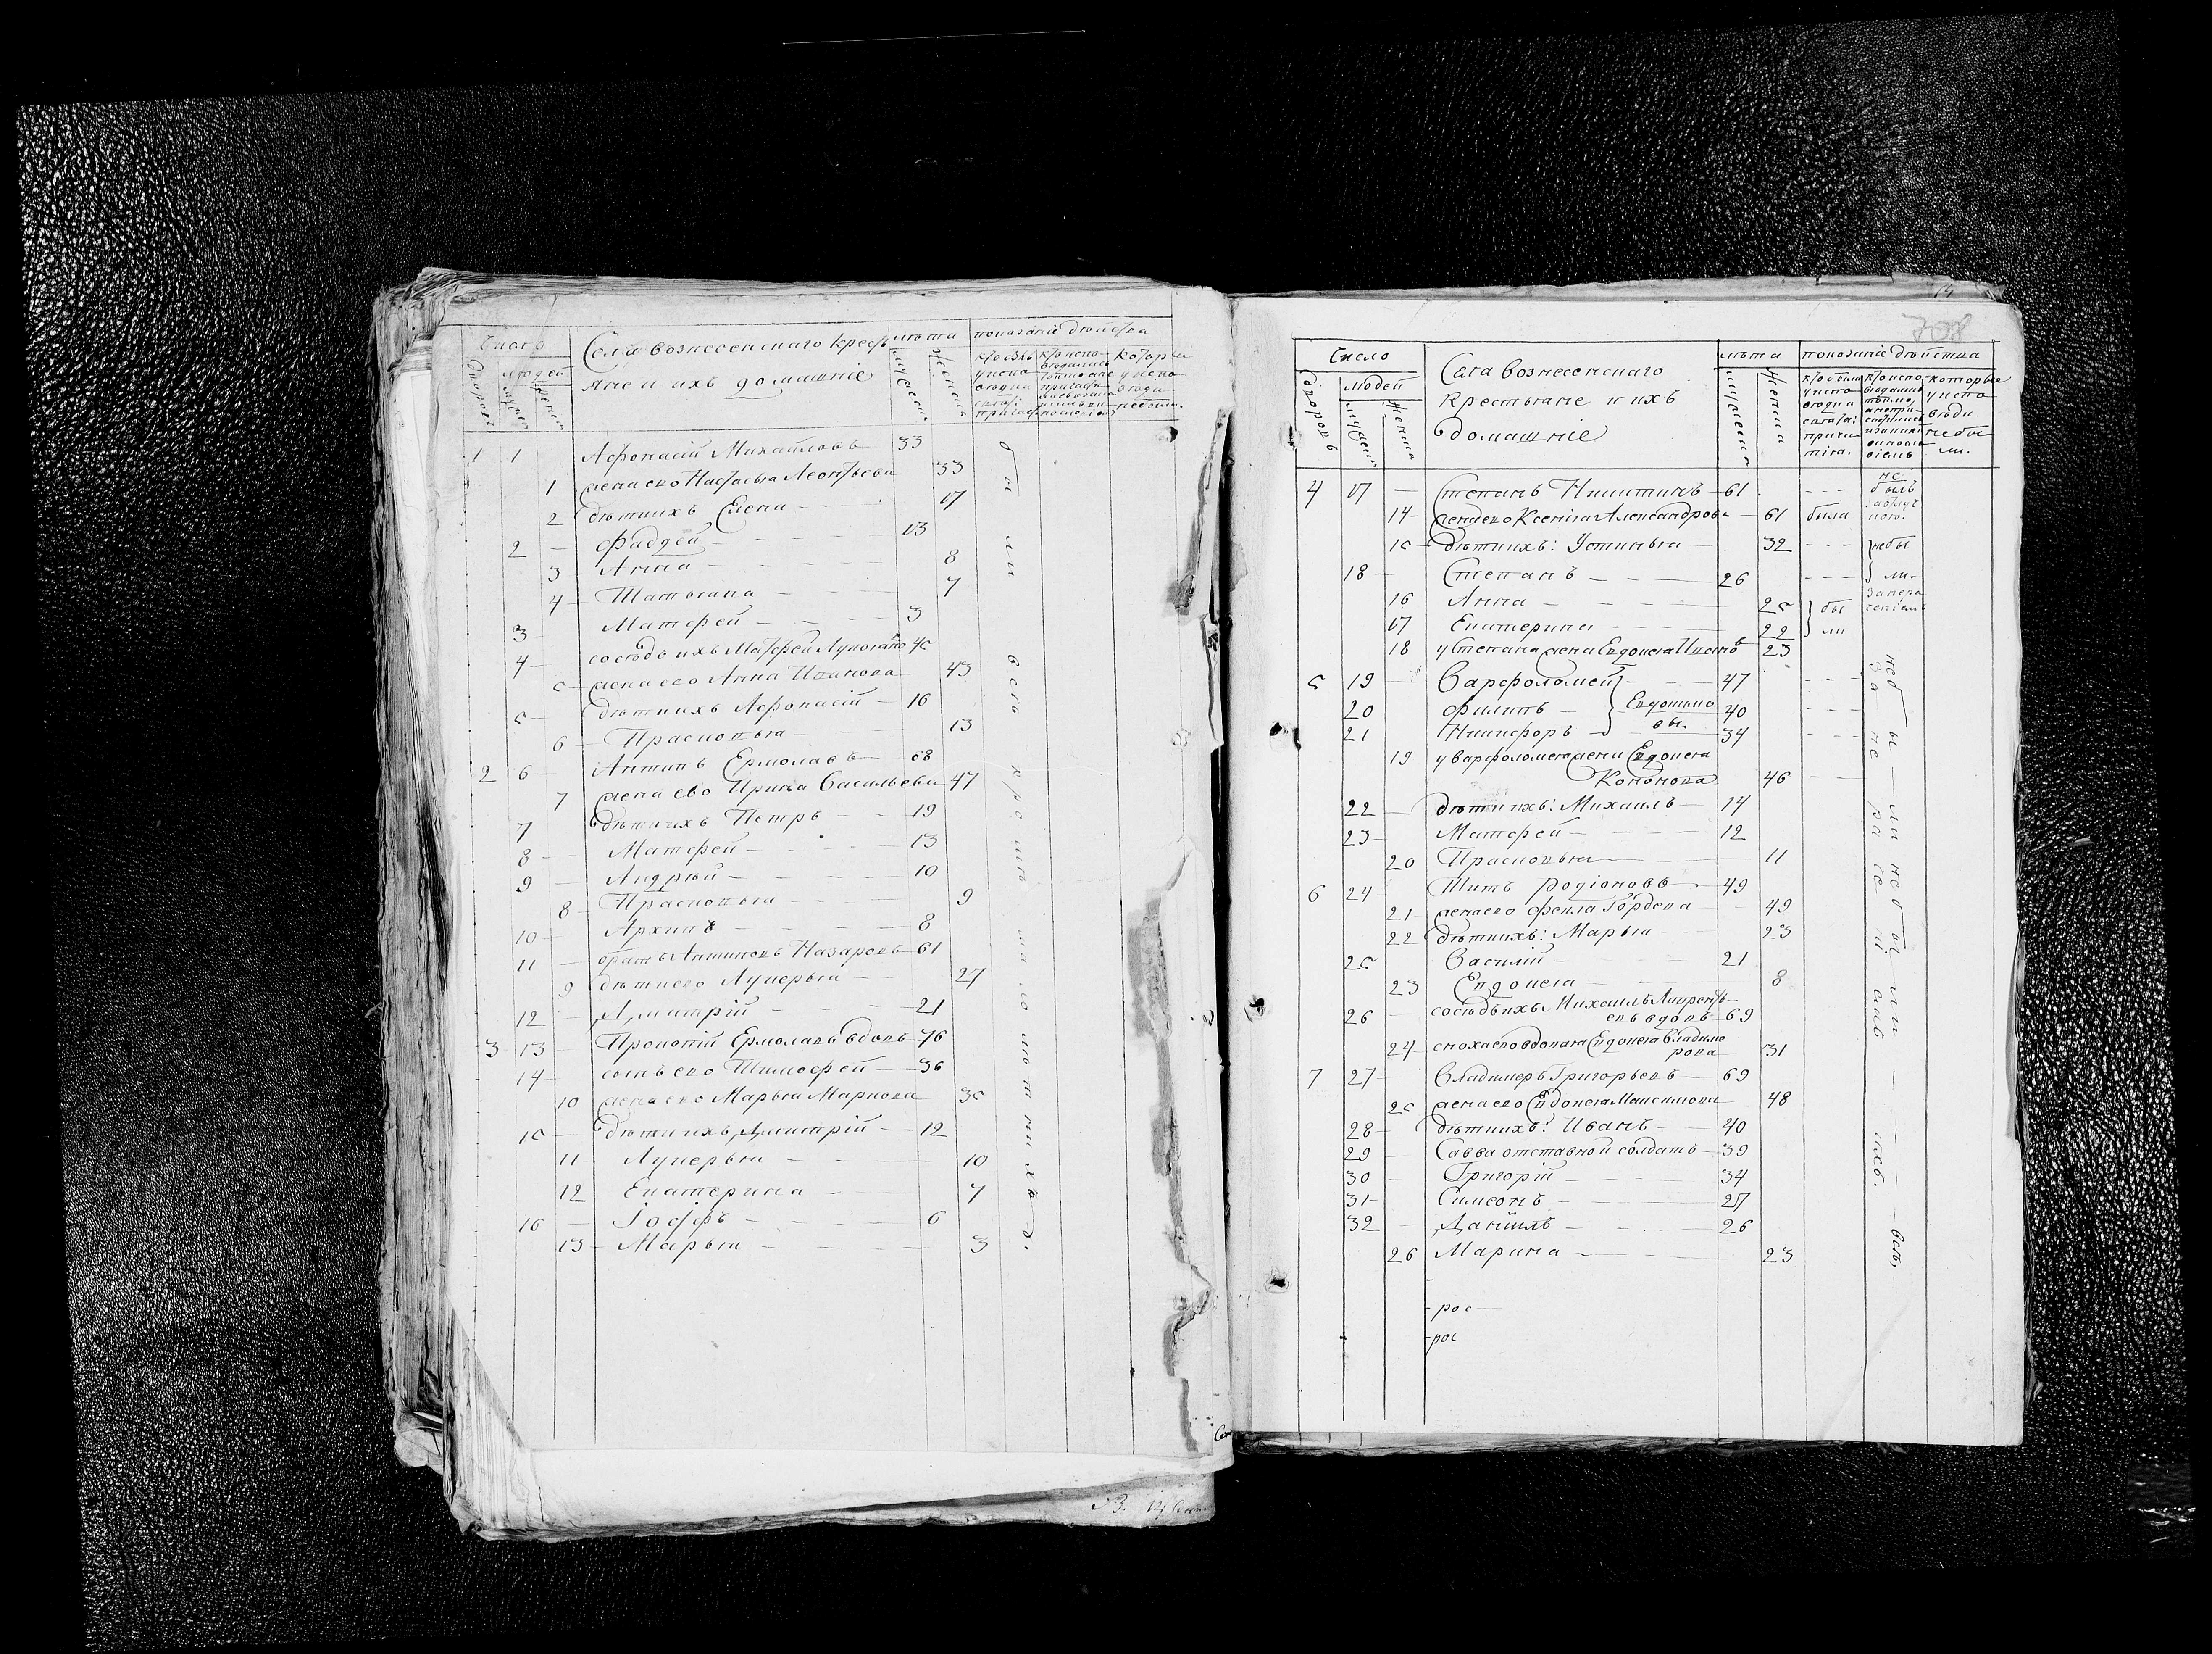 Число
Села вознесенскаго кресть
лѣта
показаніе дѣйства
людей
яне и ихъ домашніе
дворовъ
мужеска
женска
мужеска
женска
1 1 Афонасій Михайловъ 33
1 жена его Наталья Леонтьева 33
2 дѣти ихъ Елена - - - 17
2 - Фаддей - - - 13
3 Анна - - - 8
4 - Татьяна - - - 7
3 - Матфей - - - 3
4 - сосѣдъ ихъ Матфей 45
5 - жена его Анна Иванова 43
5 - дѣти ихъ Афонасій - 16
6 - Прасковья - - 13
2 6 - Антипъ Ермолаевъ - 68
7 жена его Ирина Васильева 47
7 дѣти ихъ Петръ - - 19
8 - - Матфей - - - 13
9 - Андрѣй - - - 10
8 - Прасковья - - - 9
10 - Архипъ - - - 8
11 - братъ Антиповъ Назаровъ 61
9 дѣти его Лукерья - - 27
12 - Дмитрій - - - 21
3 13 - Прокопій Ермолаевъ вдовъ - 76
14 - сынъ его Тимофей - 36
10 жена его Марья Маркова 35
15 - дѣти ихъ Дмитрій - - 12
11 - Лукерья - - - 10
12 Екатерина - - 7
16 - Іосифъ - - - 6
13 - Марья - - - 3
были всѣ кромѣ малолѣтнихъ
708
Число
Села вознесенскаго
лѣта
показаніе дѣйства
людей
крестьяне и ихъ
домашніе
дворовъ
мужеска
женска
мужеска
женска
которые
у испо
вѣди
не бы
ли.
4 17 - Степанъ Никитинъ - 61 - - - не былъ
14 - жена его Ксенія Александрова - 61 была
15 - дѣти ихъ: Устинья - 32 - - - небы
18 - Степанъ - - - 26 - - - ли.
16 Анна - - - 25 бы
17 Екатерина - - - 22 ли
18 у Степана жена Евдокея Иванов 23
5 19 - Варфоломей - - - 47 - - -
20 Филипъ - Евдокимо 40 - - -
21 Никифоръ - вы. 34 - - -
19 у варфоломея жена Евдокея
Кононова 46 - -
22 - дѣти ихъ: Михаилъ - 14
23 - Матфей - - - 12
20 Прасковья - - - 11
6 24 Титъ Родіоновъ - 49
21 - жена его Фекла Гордеева - - 49
22 дѣти ихъ: Марья - - - 23
25 Василій - - - 21
23 Евдокея - - - 8
26 - сосѣдъ ихъ Михаилъ Лаврентье-
въ вдовъ - 69
24 - сноха его вдова Евдокея Владиме
рова 31
7 27 - Владимеръ Григорьевъ - 69
25 жена его Евдокея Максимова 48
28 - дѣти ихъ: Иванъ - 40
29 - Савва отставной солдатъ - 39
30 - Григорій - - - 34
31 - Симеонъ - - - 27
32 - Даніилъ - - - 26
26 Марина - - - 23
небы - ли не были - всѣ
- рос -
- рос